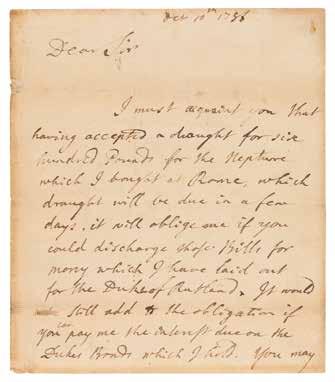 Oct 10th 1786
Dear Sir
I must acquaint you that
having accepted a draught for six
hundred Pounds for the Neptune
which I bought at Rome, which
draught will be due in a few
days, it will oblige me if you
could discharge those Bills for
mony which I have laid out
for the Duke of Rutland. It would
still add to the obligation if
you can pay me the interest due on the
Dukes Bonds which I hold. You may